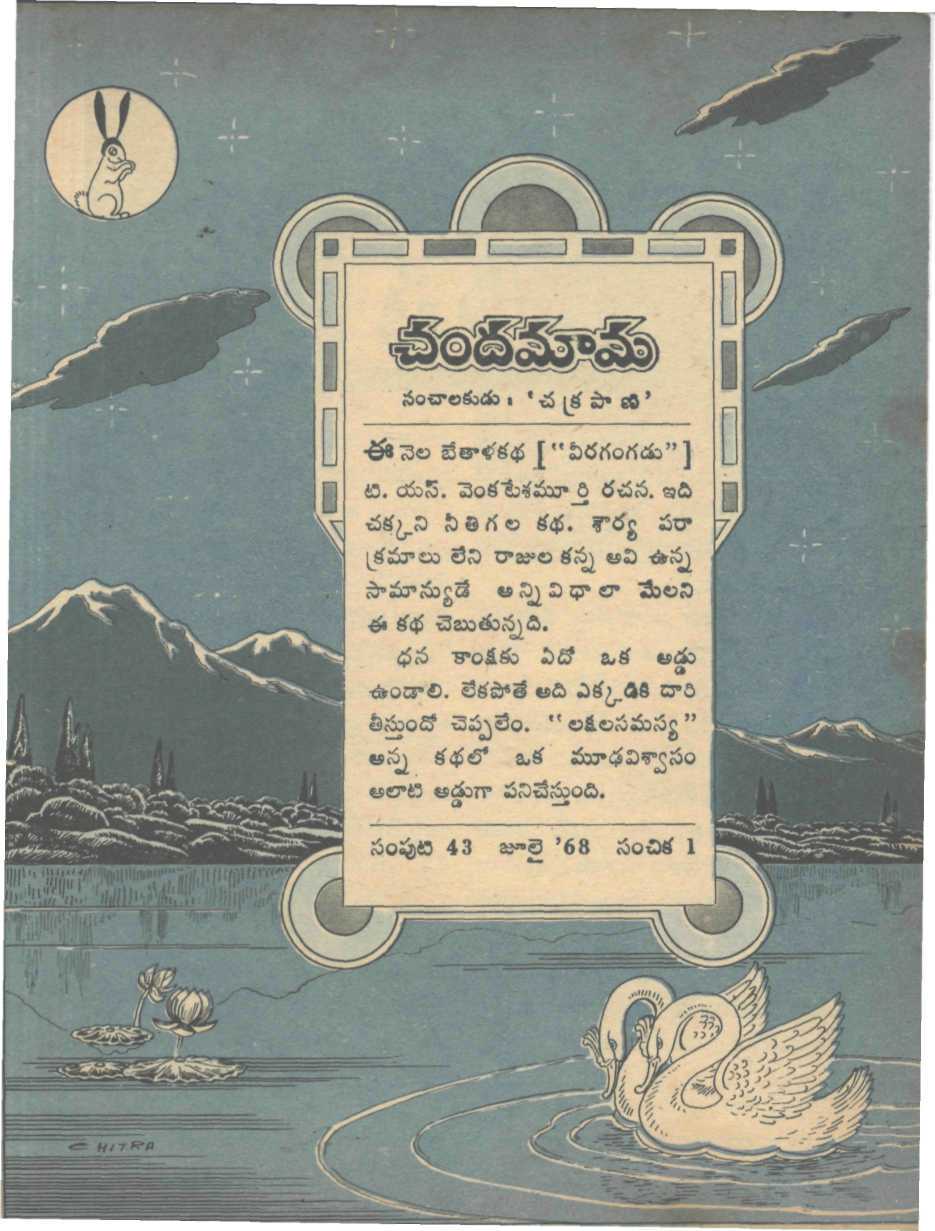 చందమామ
సంచాలకుడు : ‘చక్రపాణి’
ఈ నెల బేతాళకథ [“వీరగంగడు”]
టి. యస్. వెంకటేశమూర్తి రచన. ఇది
చక్కని నీతిగల కథ. శౌర్య పరా
క్రమాలు లేని రాజుల కన్న అవి ఉన్న
సామాన్యుడే అన్నివిధాలా మేలని
ఈ కథ చెబుతున్నది.
ధన కాంక్షకు ఏదో ఒక అడ్డు
ఉండాలి. లేకపోతే అది ఎక్కడికి దారి
తీస్తుందో చెప్పలేం. “లక్షలసమస్య”
అన్న కథలో ఒక మూఢవిశ్వాసం
అలాటి అడ్డుగా పనిచేస్తుంది.
సంపుటి 43 జూలై ’68 సంచిక 1
CHITRA